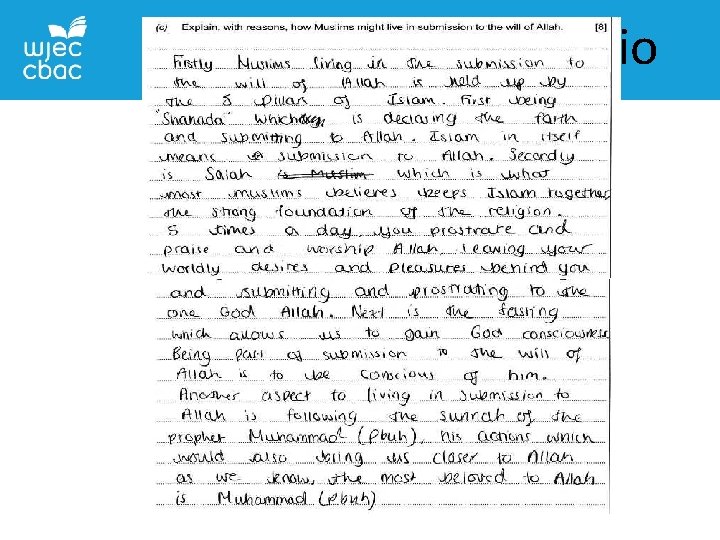 wjec
cbac
io
(c) Explain, with reasons, how Muslims might live in submission to the will of Allah. [8]
Firstly Muslims living in the submission to
the will of Allah is held up by
the 5 pillars of Islam. First being
"Shahada" which is declaring the faith
and submitting to Allah. Islam in itself
means submission to Allah. Secondly
is Salah is Muslim which is what
most muslims believes keeps Islam together
the strong foundation of the religion.
5 times a day you prostrate and
praise and worship Allah, leaving your
worldly desires and pleasures behind you
and submitting and prostrating to the
one God Allah. Next is the fasting
which allows us to gain God consciousness
Being part of submission to the will of
Allah is to be conscious of him.
Another aspect to living in submission to
Allah is following the sunnah of the
prophet Muhammad (Pbuh), his actions which
would also bring us closer to Allah
as we know, the most beloved to Allah
is Muhammad (Pbuh)